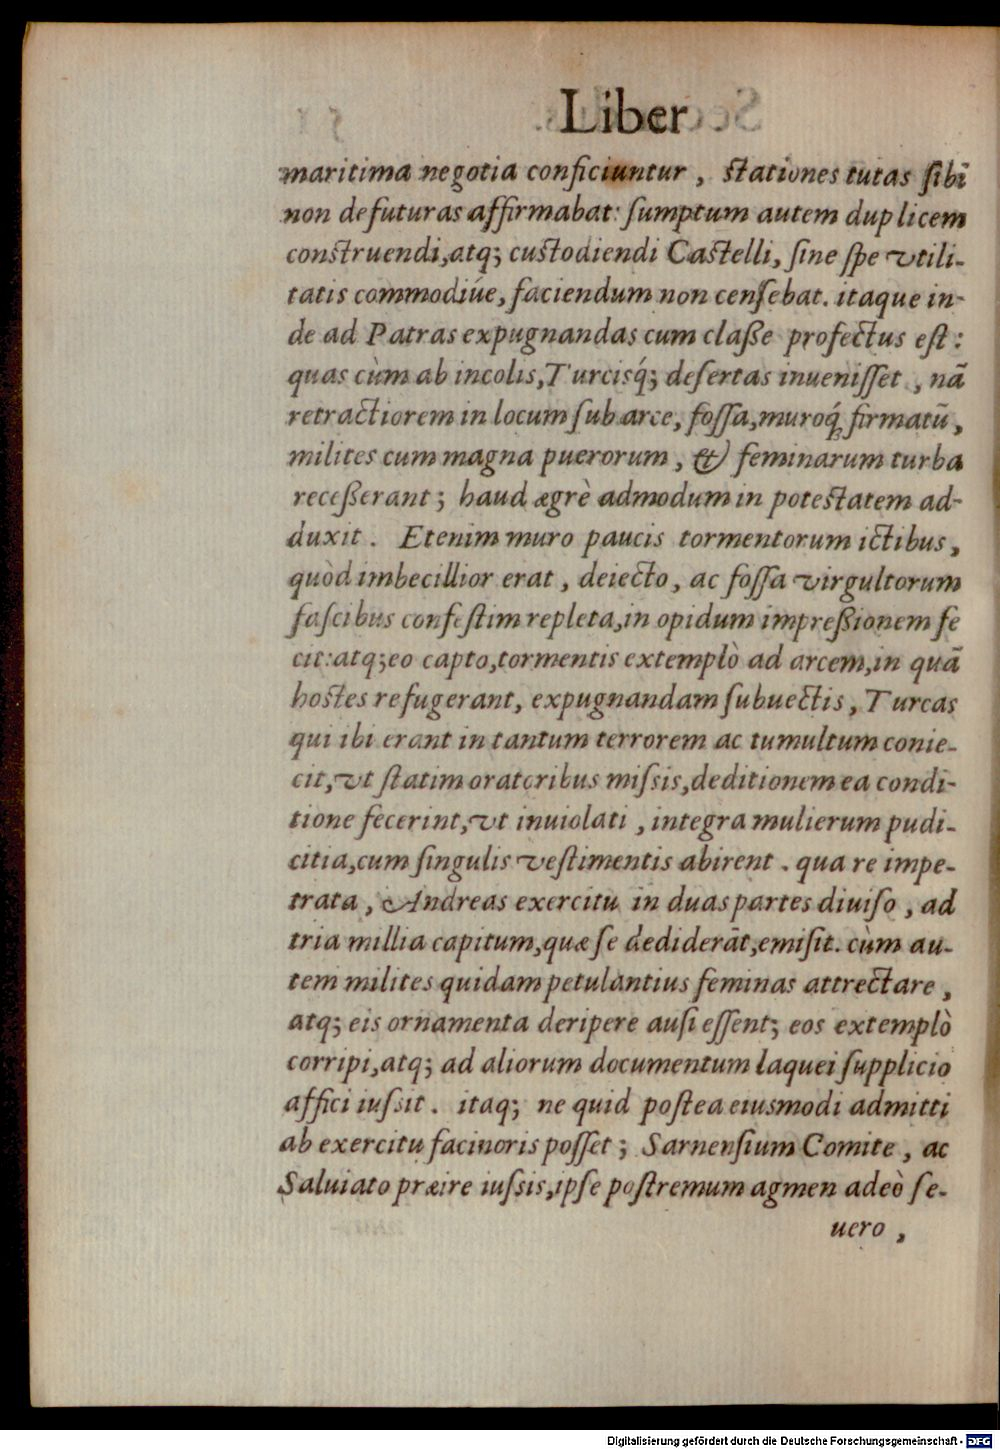 Liber
maritima negotia conficiuntur, ſtationes tutas ſibi
non defuturas affirmabat: ſumptum autem duplicem
conſtruendi, atq; cuſtodiendi Caſtelli, ſine ſpe vtili-
tatis commodiúe, faciendum non cenſebat. itaque in-
de ad Patras expugnandas cum claße profectus eſt:
quas cùm ab incolis, Turcisq́; deſertas inueniſſet, nā
retractiorem in locum ſub arce, foſſa, muroq́; firmatū,
milites cum magna puerorum, & feminarum turba
receßerant; haud ægrè admodum in poteſtatem ad-
duxit. Etenim muro paucis tormentorum ictibus,
quòd imbecillior erat, deiecto, ac foſſa virgultorum
faſcibus confeſtim repleta, in opidum impreßionem fe
cit: atq; eo capto, tormentis extemplò ad arcem, in quā
hoſtes refugerant, expugnandam ſubuectis, Turcas
qui ibi erant in tantum terrorem ac tumultum conie-
cit, vt ſtatim oratoribus miſsis, deditionem ea condi-
tione fecerint, vt inuiolati, integra mulierum pudi-
citia, cum ſingulis veſtimentis abirent. qua re impe-
trata, Andreas exercitu in duas partes diuiſo, ad
tria millia capitum, quæ ſe dediderāt, emiſit. cùm au-
tem milites quidam petulantius feminas attrectare,
atq; eis ornamenta deripere auſi eſſent; eos extemplò
corripi, atq; ad aliorum documentum laquei ſupplicio
affici iuſsit. itaq; ne quid poſtea eiusmodi admitti
ab exercitu facinoris poſſet; Sarnenſium Comite, ac
Saluiato præire iuſsis, ipſe poſtremum agmen adeò ſe-
uero,
Digitalisierung gefördert durch die Deutsche Forschungsgemeinschaft - DFG